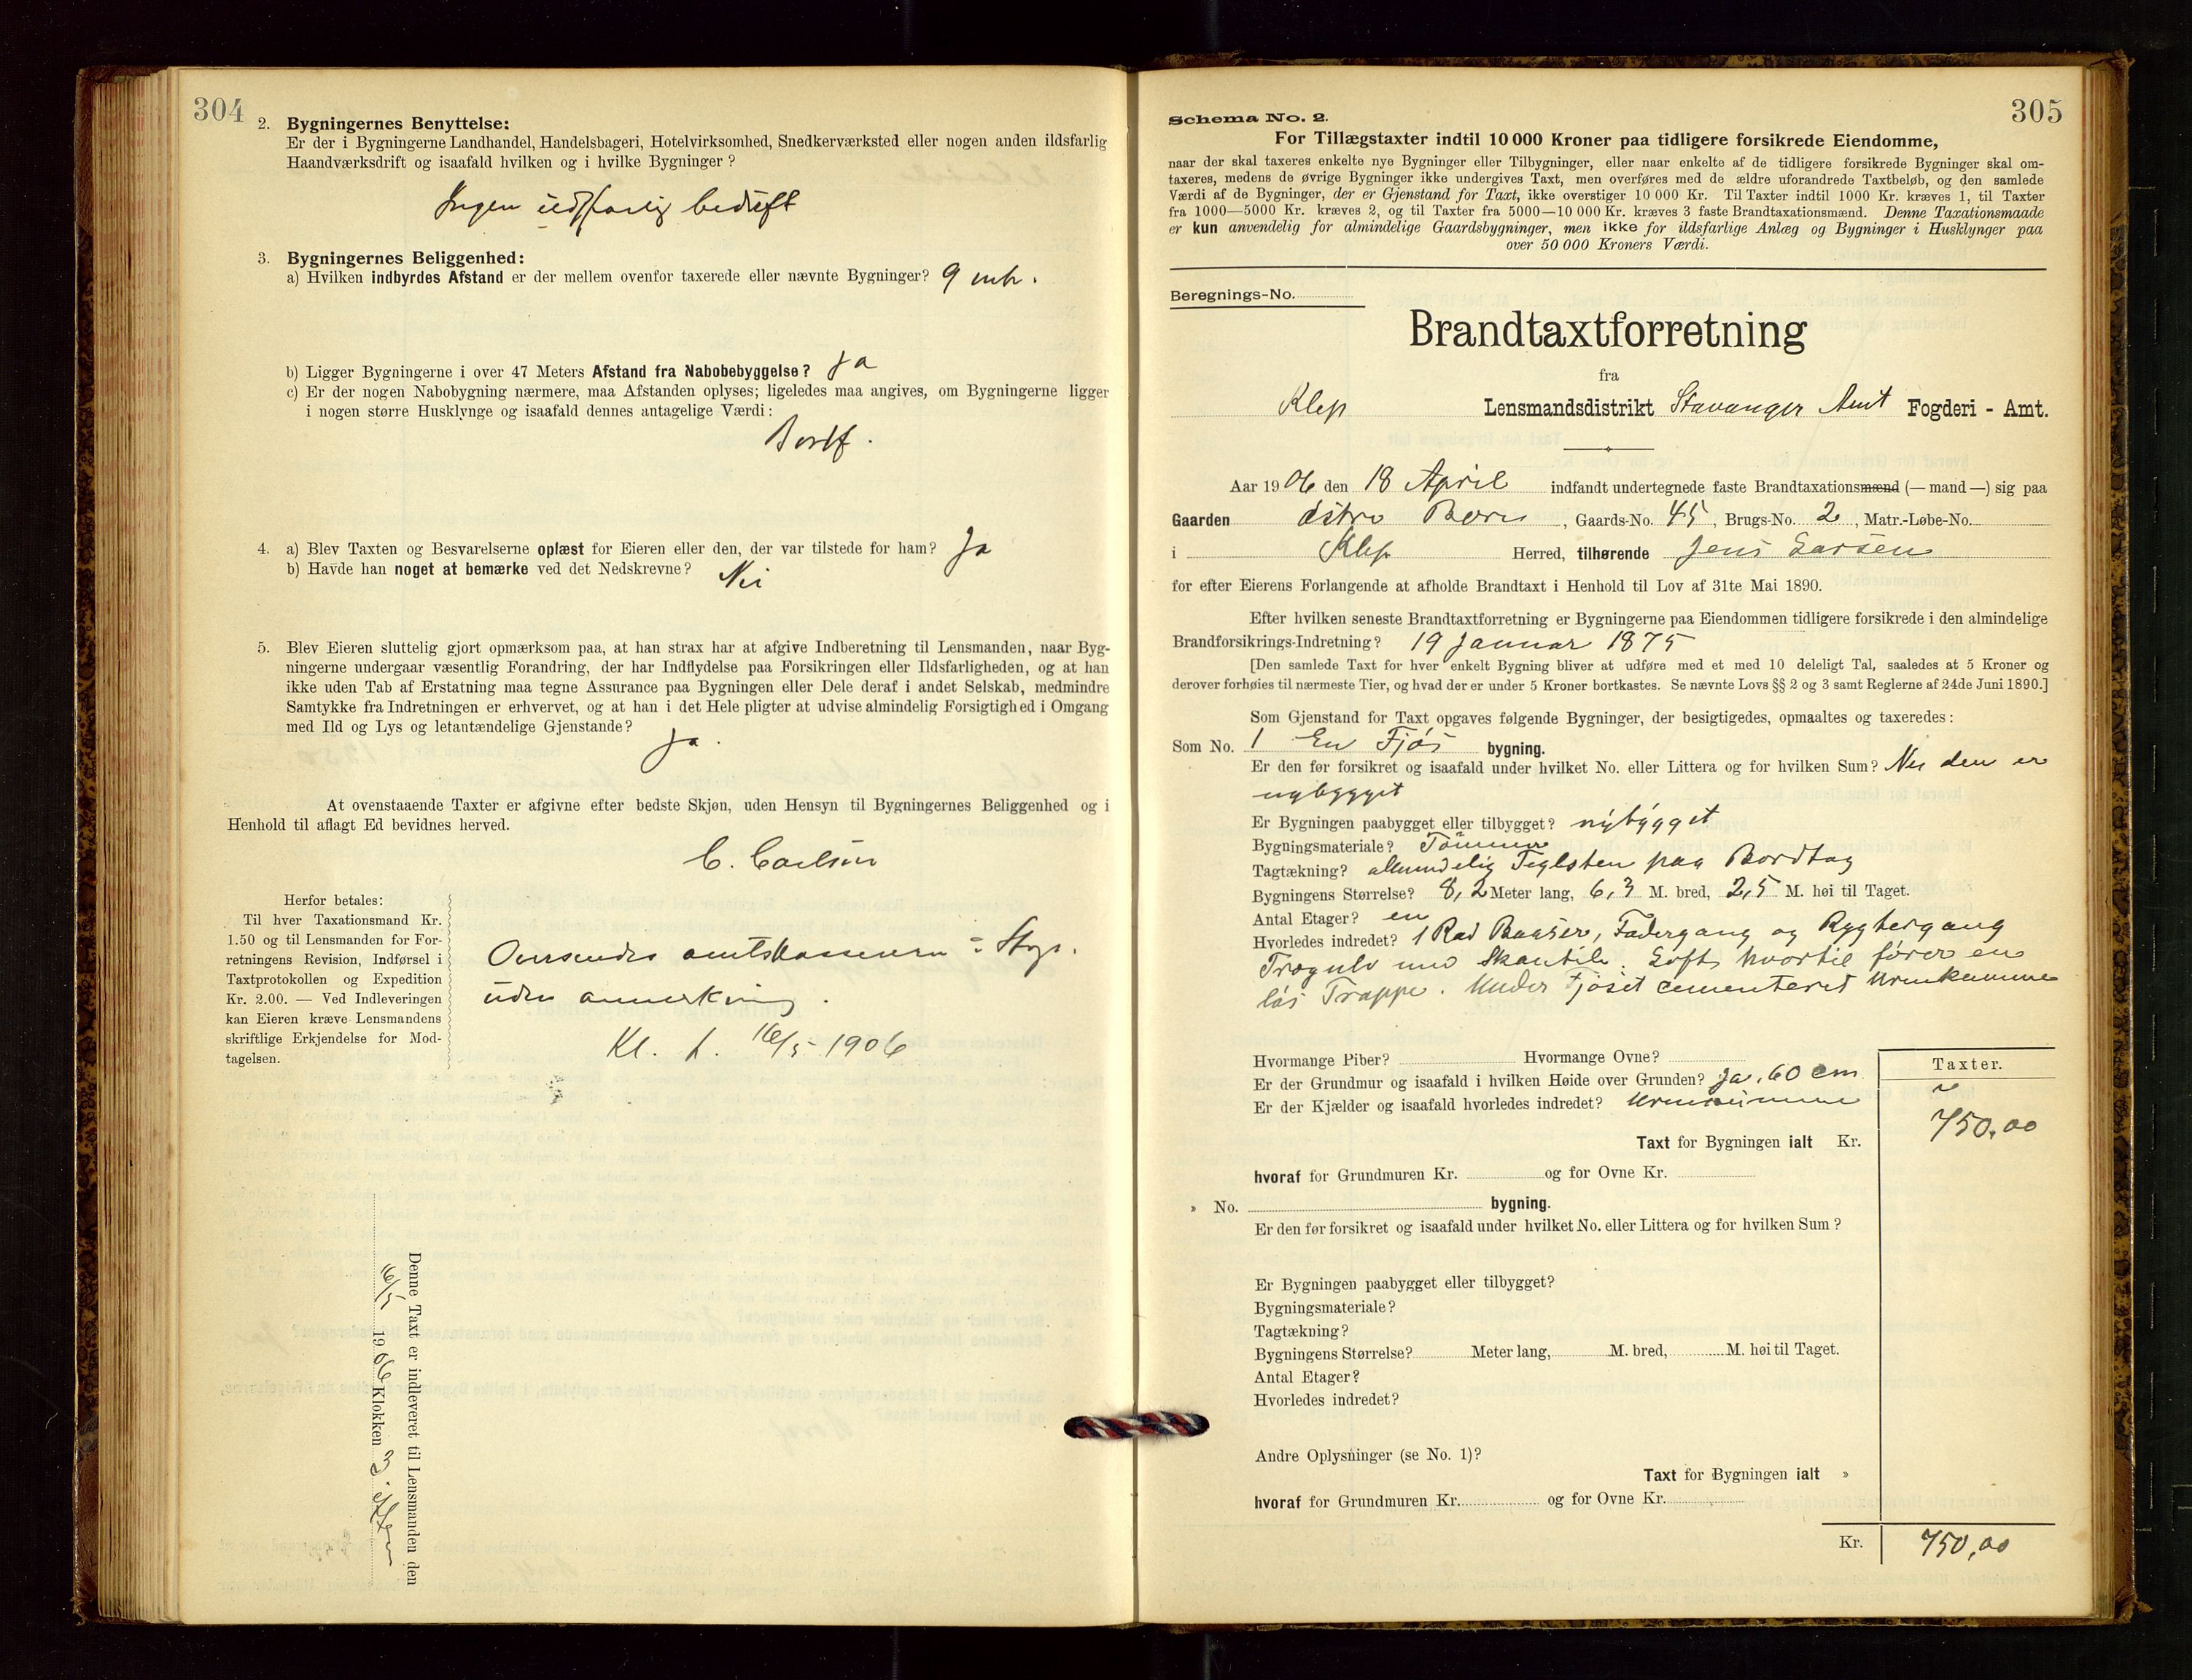 304
2. Bygningernes Benyttelse:
Er der i Bygningerne Landhandel, Handelsbageri, Hotelvirksomhed, Snedkerværksted eller nogen anden ildsfarlig
Haandværksdrift og isaafald hvilken og i hvilke Bygninger?
Ingen ildsfarlig bedrift
3. Bygningernes Beliggenhed:
a) Hvilken indbyrdes Afstand er der mellem ovenfor taxerede eller nævnte Bygninger? 9 mtr.
b) Ligger Bygningerne i over 47 Meters Afstand fra Nabobebyggelse? Ja
c) Er der nogen Nabobygning nærmere, maa Afstanden oplyses; ligeledes maa angives, om Bygningerne ligger
i nogen større Husklynge og isaafald dennes antagelige Værdi:
Bortf.
4. a) Blev Taxten og Besvarelserne oplæst for Eieren eller den, der var tilstede for ham? Ja
b) Havde han noget at bemærke ved det Nedskrevne? Nei
5. Blev Eieren sluttelig gjort opmærksom paa, at han strax har at afgive Indberetning til Lensmanden, naar Byg-
ningerne undergaar væsentlig Forandring, der har Indflydelse paa Forsikringen eller Ildsfarligheden, og at han
ikke uden Tab af Erstatning maa tegne Assurance paa Bygningen eller Dele deraf i andet Selskab, medmindre
Samtykke fra Indretningen er erhvervet, og at han i det Hele pligter at udvise almindelig Forsigtighed i Omgang
med Ild og Lys og letantændelige Gjenstande?
Ja.
At ovenstaaende Taxter er afgivne efter bedste Skjøn, uden Hensyn til Bygningernes Beliggenhed og i
Henhold til aflagt Ed bevidnes herved.
C. Carlsen
Herfor betales:
Til hver Taxationsmand Kr.
1.50 og til Lensmanden for For-
retningens Revision, Indførsel i
Taxtprotokollen og Expedition
Kr. 2.00. — Ved Indleveringen
kan Eieren kræve Lensmandens
skriftlige Erkjendelse for Mod-
tagelsen.
Oversendes amtskasseren i Stvgr.
uden anmerkning.
Kl. L. 16/5 1906
Denne Taxt er indleveret til Lensmanden den
16/5 1906 Klokken 3.
305
Schema No. 2.
For Tillægstaxter indtil 10 000 Kroner paa tidligere forsikrede Eiendomme,
naar der skal taxeres enkelte nye Bygninger eller Tilbygninger, eller naar enkelte af de tidligere forsikrede Bygninger skal om-
taxeres, medens de øvrige Bygninger ikke undergives Taxt, men overføres med de ældre uforandrede Taxtbeløb, og den samlede
Værdi af de Bygninger, der er Gjenstand for Taxt, ikke overstiger 10 000 Kr. Til Taxter indtil 1000 Kr. kræves 1, til Taxter
fra 1000—5000 Kr. kræves 2, og til Taxter fra 5000—10 000 Kr. kræves 3 faste Brandtaxationsmænd. Denne Taxationsmaade
er kun anvendelig for almindelige Gaardsbygninger, men ikke for ildsfarlige Anlæg og Bygninger i Husklynger paa
over 50 000 Kroners Værdi.
Beregnings-No.
Brandtaxtforretning
fra
Klep Lensmandsdistrikt Stavanger Amt Fogderi - Amt.
Aar 1906 den 18 April indfandt undertegnede faste Brandtaxationsmænd (— mand —) sig paa
Gaarden østre Bore, Gaards-No. 45, Brugs-No. 2, Matr.-Løbe-No.
i Klep Herred, tilhørende Jens Larsen
for efter Eierens Forlangende at afholde Brandtaxt i Henhold til Lov af 31te Mai 1890.
Efter hvilken seneste Brandtaxtforretning er Bygningerne paa Eiendommen tidligere forsikrede i den almindelige
Brandforsikrings-Indretning? 19 Januar 1875
[Den samlede Taxt for hver enkelt Bygning bliver at udføre med et med 10 deleligt Tal, saaledes at 5 Kroner og
derover forhøies til nærmeste Tier, og hvad der er under 5 Kroner bortkastes. Se nævnte Lovs §§ 2 og 3 samt Reglerne af 24de Juni 1890.]
Som Gjenstand for Taxt opgaves følgende Bygninger, der besigtigedes, opmaaltes og taxeredes:
Som No. 1 En Fjøs bygning.
Er den før forsikret og isaafald under hvilket No. eller Littera og for hvilken Sum? Nei den er
nybygget
Er Bygningen paabygget eller tilbygget? nybygget
Bygningsmateriale? Tømmer
Tagtækning? almindelig Teglsten paa Bordtag
Bygningens Størrelse? 8,2 Meter lang, 6,3 M. bred, 2,5 M. høi til Taget.
Antal Etager? en
Hvorledes indredet? 1 Rad Baaser, Fodergang og Rygtergang
Trægulv med Skantile. Loft hvortil fører en
løs Trappe. Under Fjøset cementeret Urinkumme
Hvormange Piber? Hvormange Ovne?
Er der Grundmur og isaafald i hvilken Høide over Grunden? Ja, 60 cm
Er der Kjælder og isaafald hvorledes indredet? Urinkumme
Taxter.
Taxt for Bygningen ialt Kr. 750,00
hvoraf for Grundmuren Kr. og for Ovne Kr.
» No. bygning.
Er den før forsikret og isaafald under hvilket No. eller Littera og for hvilken Sum?
Er Bygningen paabygget eller tilbygget?
Bygningsmateriale?
Tagtækning?
Bygningens Størrelse? Meter lang, M. bred, M. høi til Taget.
Antal Etager?
Hvorledes indredet?
Andre Oplysninger (se No. 1)?
Taxt for Bygningen ialt »
hvoraf for Grundmuren Kr. og for Ovne Kr.
Kr. 750,00